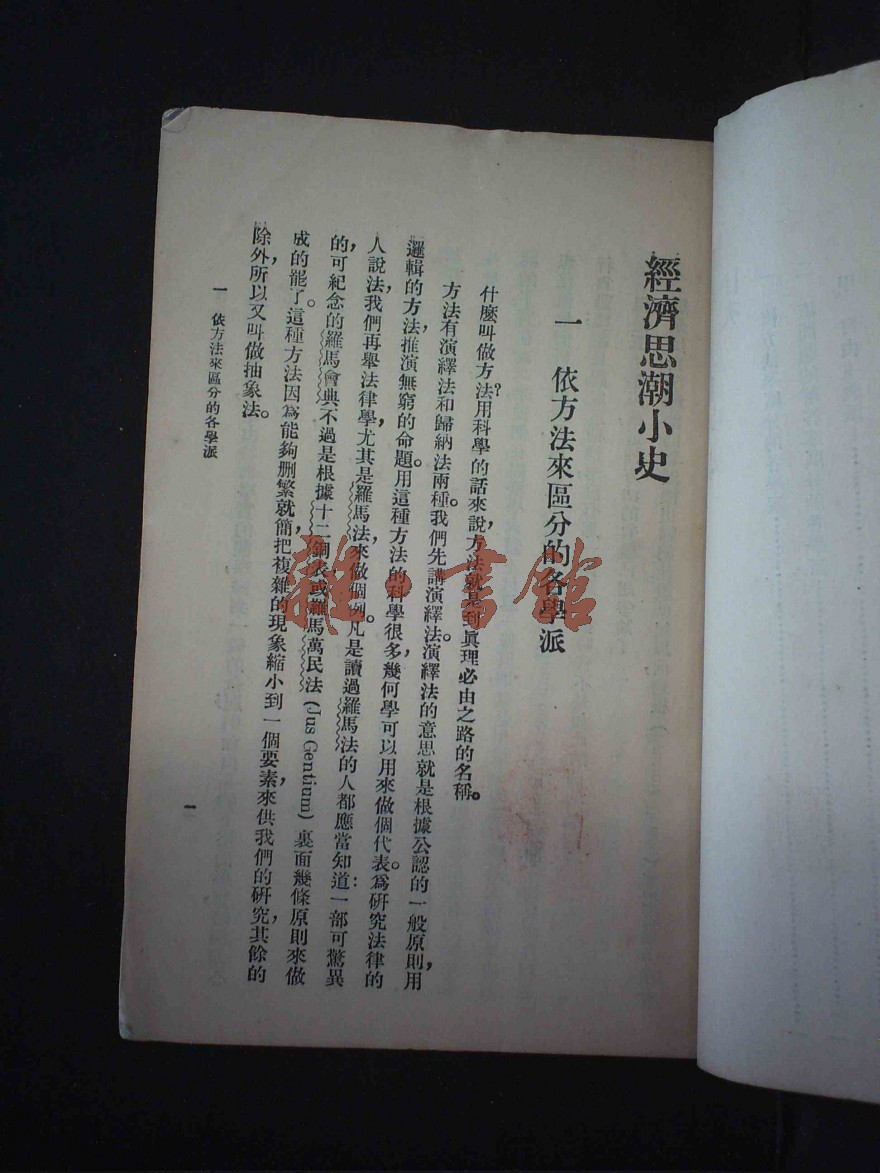 經濟思潮小史
一 依方法來區分的各學派
什麼叫做方法?用科學的話來說,方法就是到眞理必由之路的名稱。
方法有演繹法和歸納法兩種。我們先講演繹法。演繹法的意思就是根據公認的一般原則,用
邏輯的方法,推演無窮的命題。用這種方法的科學很多,幾何學可以用來做個代表。爲研究法律的
人說法,我們再舉法律學,尤其是羅馬法來做個例。凡是讀過羅馬法的人都應當知道:一部可驚異
的,可紀念的羅馬會典不過是根據十二銅表或羅馬萬民法(Jus Gentium)裏面幾條原則來做
成的罷了。這種方法因爲能夠刪繁就簡,把複雜的現象縮小到一個要素來供我們的研究,其餘的
除外,所以又叫做抽象法。
一 依方法來區分的各學派
一
雜·書館